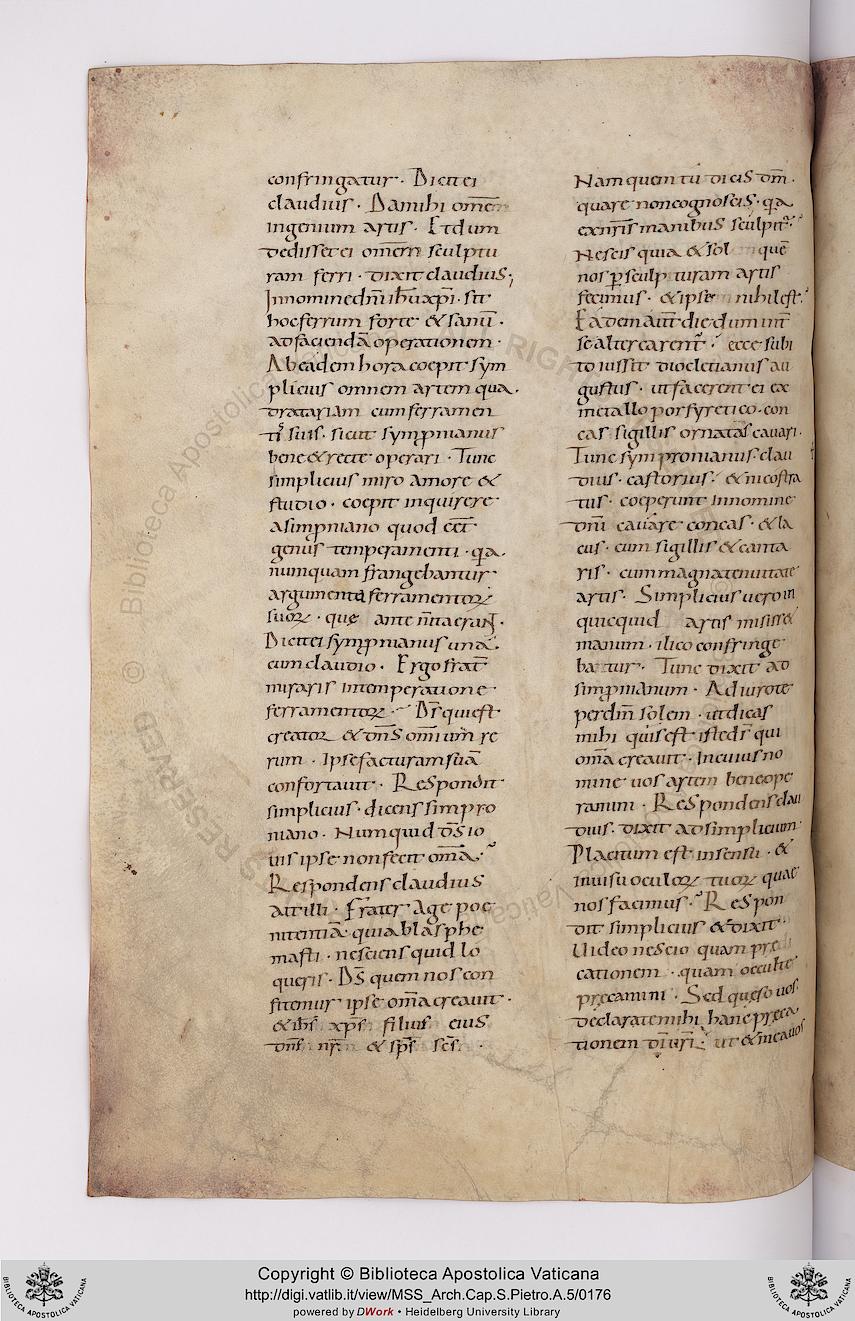 confringatur · Dicit ei
claudius · Da mihi om̅e
ingenium artis · Et dum
dedisset ei om̅em sculptu
ram ferri · dixit claudius ;
In nomine dn̅i ihu̅ xp̅i · sit
hoc ferrum forte & sanu̅ ·
ad faciendā operationem ·
Ab eadem hora coepit sym
plicius omnem artem qua
dratariam cum ferramen
tis suis · sicut sympnianus
bene & recte operari · Tunc
simplicius miro amore &
studio · coepit inquirere
a simpniano quod e̅e̅t
genus temperamenti · q̅a
numquam frangebantur
argumenta ferramentoꝝ
suoꝝ · que ante n̅ita erant ·
Dicit ei sympnianus una
cum claudio · Ergo frat̅
miraris in temperatione
ferramentoꝝ · D̅s qui est
creator & dn̅s omnium re
rum · Ipse facturam suā
confortauit · Respondit
simplicius · dicens simpro
niano · Numquid d̅s io
uis ipse non fecit om̅a ·
Respondens claudius
ait illi · frater age poe
nitentiā quia blasphe
masti · nesciens quid lo
queris · D̅s quem nos con
fitemur ipse om̅a creauit ·
& ih̅s xp̅s filius eius
dn̅s nr̅ & sp̅s sc̅s ·
Nam quem tu dicis dm̅ ·
quare non cognoscis · q̅a
ex nr̅is manibus sculpit̅ ·
Nescis quia & sol que̅
nos p̲ sculpturam artis
fecimus · & ipse nihil est ·
Eadem aut̅ die dum int̅
se altercarent̅ · ecce subi
to iussit diocletianus au
gustus · ut facerent ei ex
metallo porfyretico · con
cas sigillis ornatas cauari ·
Tunc sympronianus · clau
dius · castorius · & nicostra
tus · coeperunt in nomine
dn̅i cauare concas · & la
cus · cum sigillis & canta
ris · cum magna tenuitate
artis · Simplicius uero in
quicquid artis misisse
manum · ilico confringe
batur · Tunc dixit ad
simpnianum · Adiuro te
per dm̅ solem · ut dicas
mihi quis est iste d̅s qui
om̅a creauit · In cuius no
mine uos artem bene ope
ramini · Respondens clau
dius · dixit ad simplicium
Placitum est in sensu · &
in uisu oculoꝝ tuoꝝ quae
nos facimus · Respon
dit simplicius & dixit
Uideo nescio quam pre
cationem · quam occulte
precamini · Sed queso uos
declarate mihi hanc preca
tionem di̅ uri̅ · ut & me a uos
Copyright © Biblioteca Apostolica Vaticana
http://digi.vatlib.it/view/MSS_Arch.Cap.S.Pietro.A.5/0176
powered by DWork • Heidelberg University Library